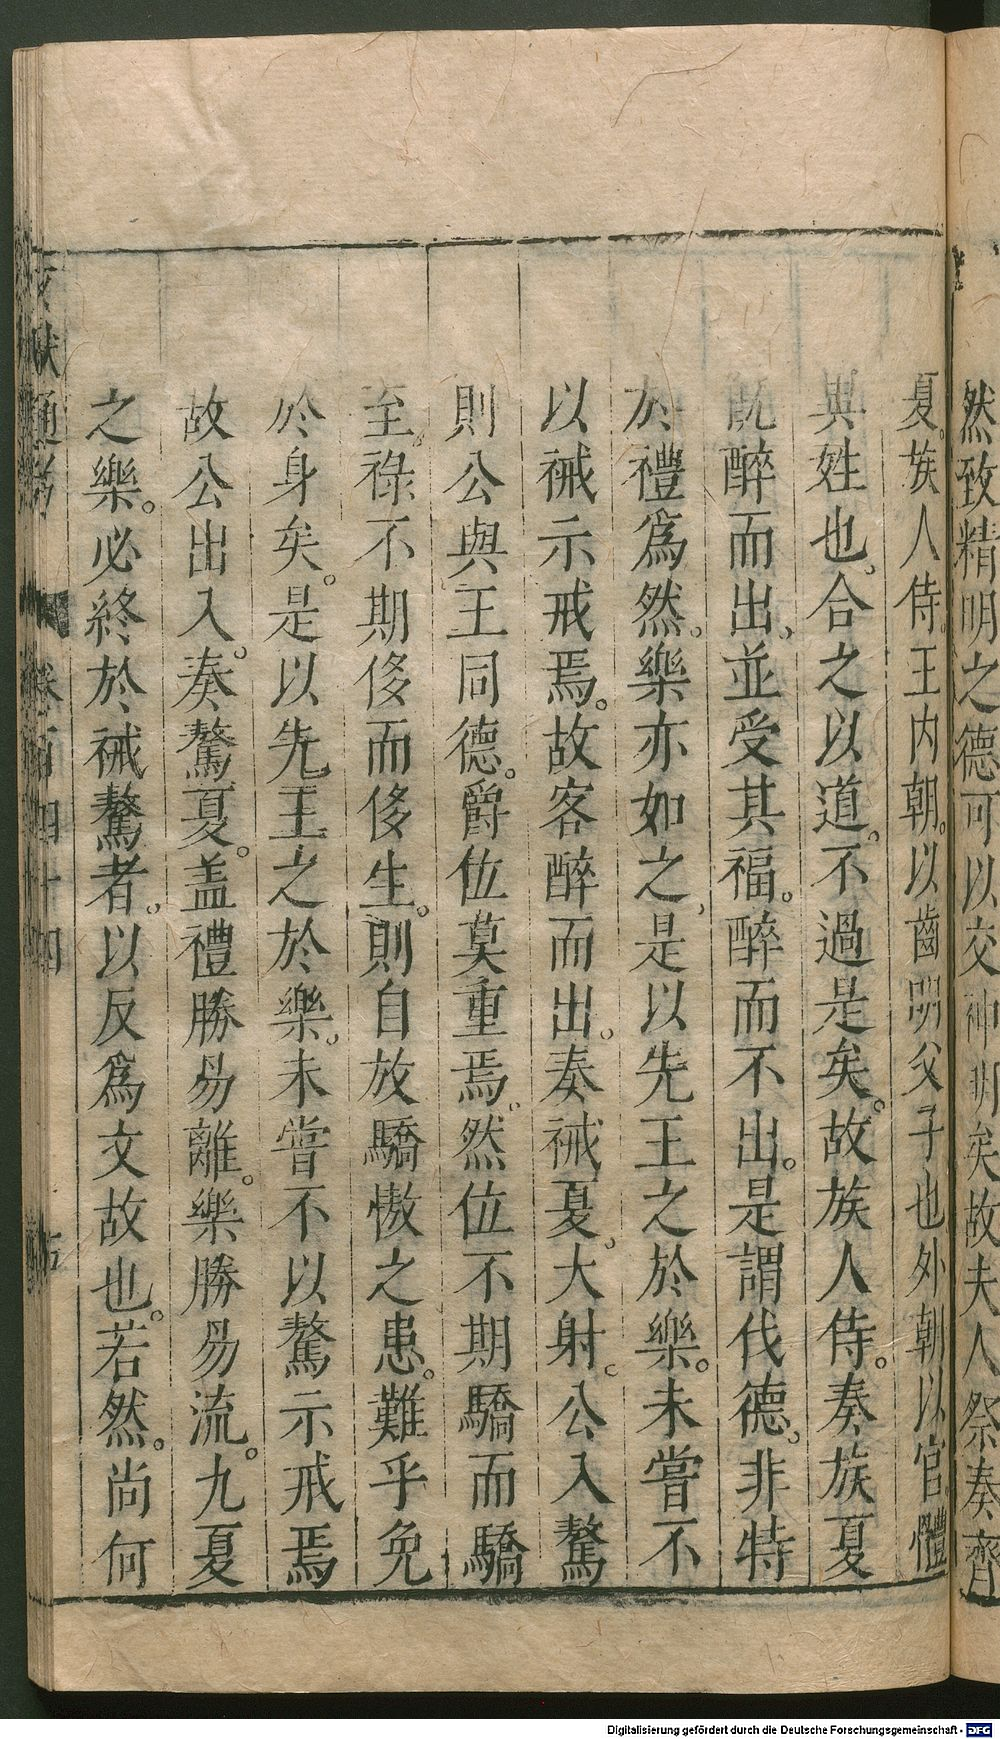 然致精明之德可以交神明矣故夫人祭奏齊
夏。族人侍。王内朝。以齒明父子也外朝以官。體
異姓也。合之以道。不過是矣。故族人侍。奏族夏
既醉而出。並受其福。醉而不出。是謂伐德。非特
於禮爲然。樂亦如之是以先王之於樂。未嘗不
以祴示戒焉。故客醉而出。奏祴夏。大射。公入驁
則公與王同德。爵位莫重焉。然位不期驕而驕
至。祿不期侈而侈生。則自放驕慠之患。難乎免
於身矣。是以先王之於樂。未嘗不以驁示戒焉
故公出入。奏驁夏。盖禮勝易離。樂勝易流。九夏
之樂。必終於祴驁者。以反爲文故也。若然。尚何
文獻通考 卷百四十四
Digitalisierung gefördert durch die Deutsche Forschungsgemeinschaft - DFG